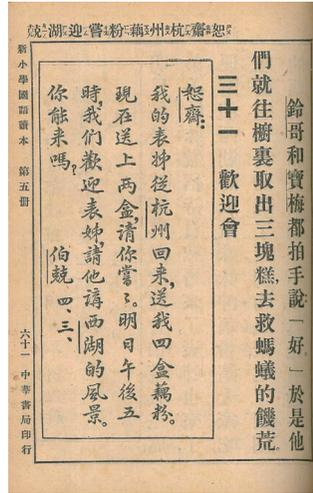 恕齋杭州藕粉嘗迎湖兢
鈴哥和寶梅都拍手說「好」於是他
們就往櫥裏取出三塊糕去救螞蟻的饑荒
三十一　歡迎會
恕齋:
我的表姊從杭州回來,送我四盒藕粉。
現在送上兩盒,請你嘗嘗。明日午後五
時,我們歡迎表姊,請他講西湖的風景。
你能來嗎?
伯兢 四、三、
新小學國語讀本　第五冊
六十一　中華書局印行